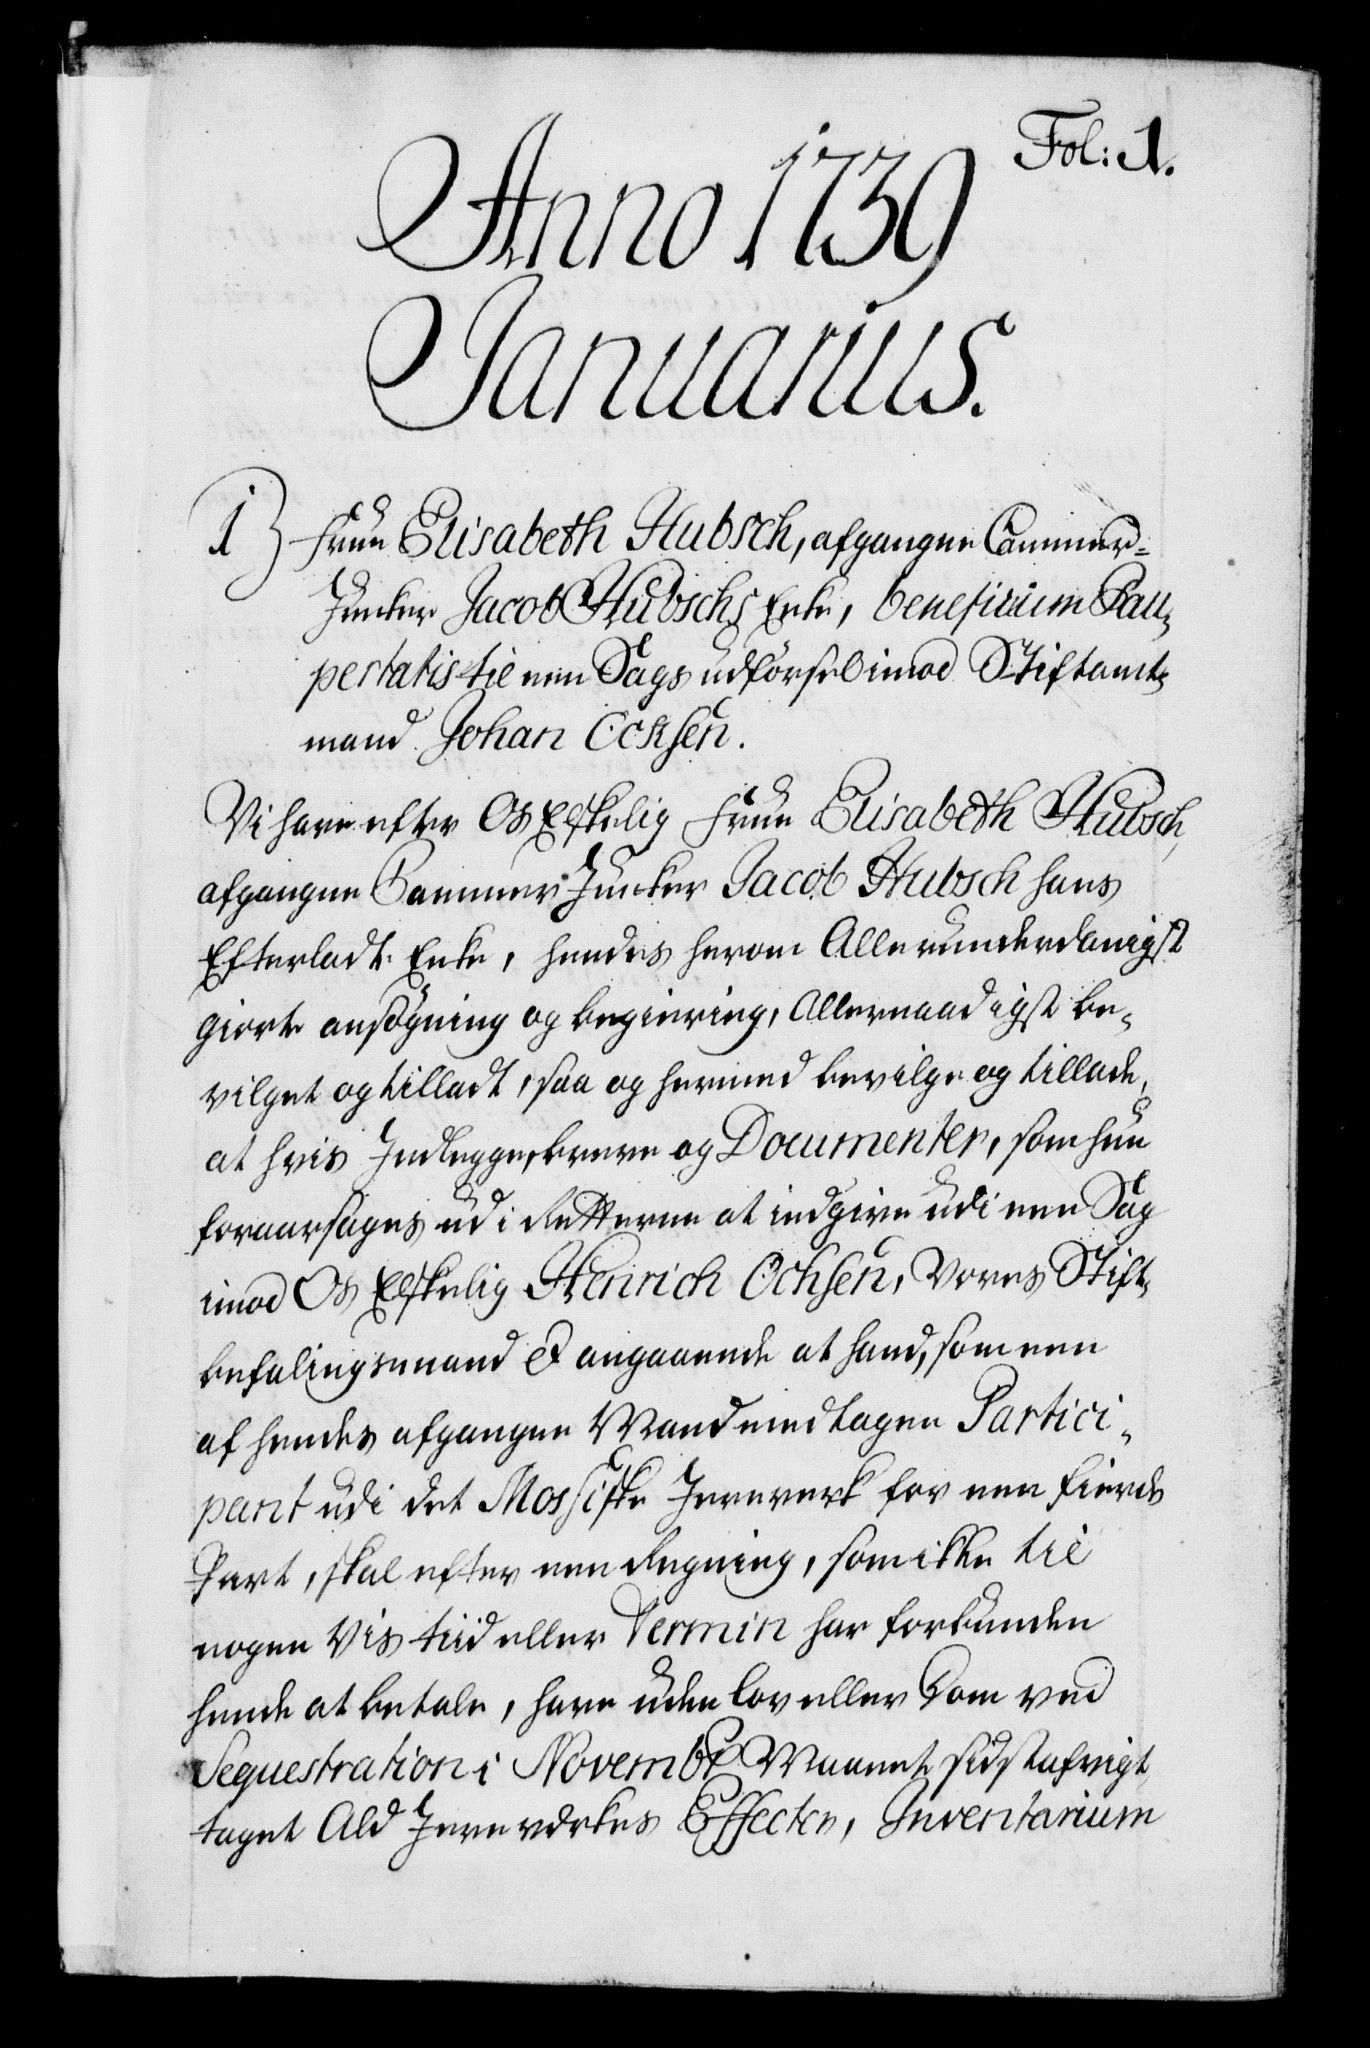 Fol: 1.
Anno 1739
Januarius.
1) Frue Elisabeth Hubsch, afgangne Cammer=
Juncker Jacob Hubschs Enke, beneficium Pau„
pertatis til een Sags udførsel imod Stiftamt„
mand Johan Ochsen.
Vi have efter Os Elskelig Frue Elisabeth Hubsch,
afgangne Cammer Juncker Jacob Hubsch hans
Efterladte Enke, hendes herom Allerunderdanigst
giorte ansøgning og begiering, Allernaadigst be„
vilget og tilladt, saa og hermed bevilge og tillade,
at hvis Indlegge, breve og Documenter, som hun
foraarsages udi Retterne at indgive udi een Sag
imod Os Elskelig Henrich Ochsen, Vores Stift„
befalingsmand & angaaende at hand, som een
af hendes afgangne Mand medtagen Partici„
pant udi det Mossiske Jernverk for een fierde
Part, skal efter een Regning, som ikke til
nogen Vis tiid eller Termin har forbunden
hende at betale, have uden Lov eller Dom ved
Sequestration i Novembr Maanet sidstafvigt
taget Ald Jernverkes Effecter, Inventarium